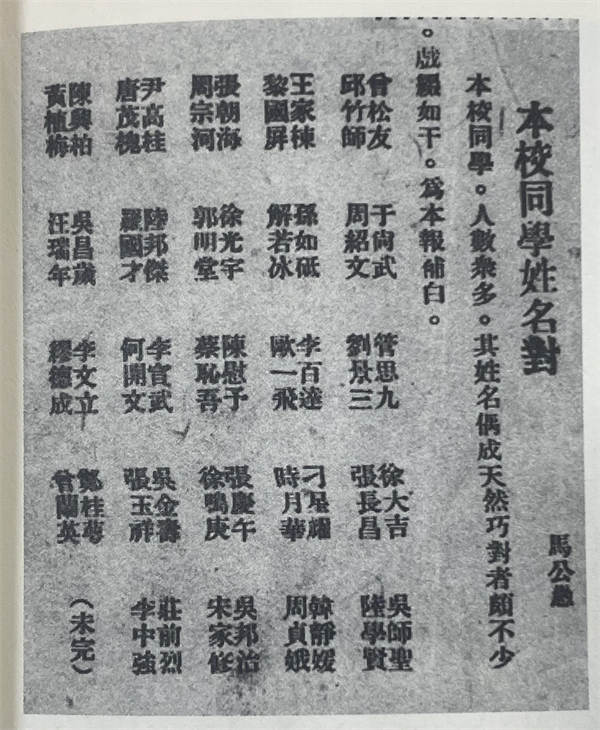 本校同學姓名對
馬公愚
本校同學。人數衆多。其姓名偶成天然巧對者頗不少
。戲綴如干。爲本報補白。
曾松友 于尙武 管思九 徐大吉 吳師聖
邱竹師 周紹文 劉景三 張長昌 陸學賢
王家棟 孫如砥 李百達 刁星耀 韓靜媛
黎國屏 解若冰 歐一飛 時月華 周貞娥
張朝海 徐光宇 陳慰予 張慶午 吳邦治
周宗河 郭明堂 蔡恥吾 徐鳴庚 宋家修
尹高桂 陸邦傑 李官武 吳金濤 莊前烈
唐茂槐 羅國才 何開文 張玉祥 李中強
陳興柏 吳昌歲 李文立 桂萼
黃植梅 汪瑞年 繆德成 曾蘭英
（未完）